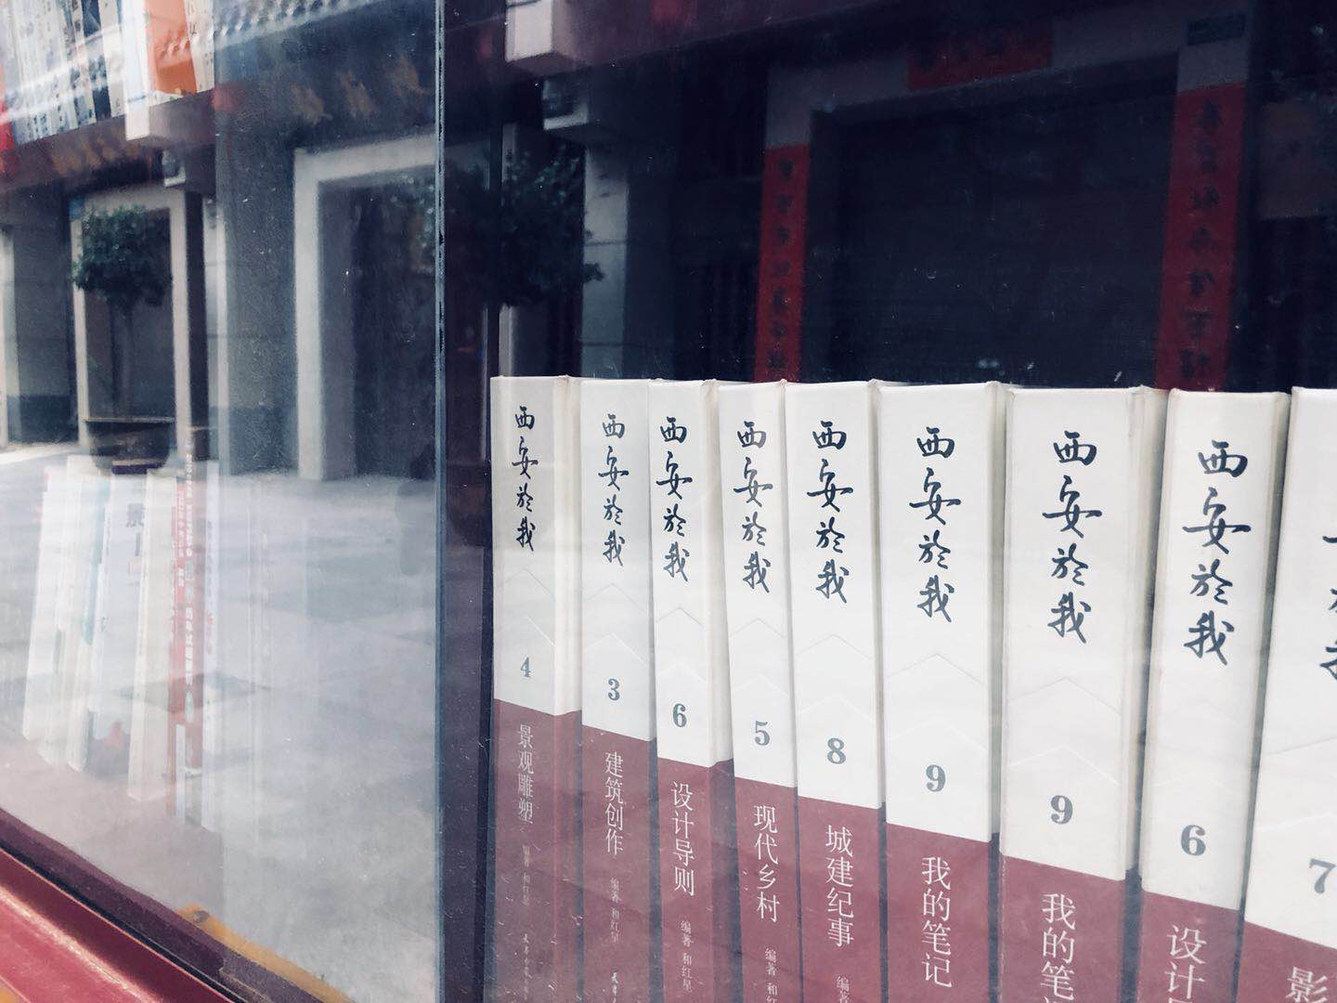 西安於我
4
景观雕塑
编著 和红星
西安於我
3
建筑创作
编著 和红星
西安於我
6
设计导则
编著 和红星
西安於我
5
现代乡村
编著 和红
西安於我
8
城建纪事
编
西安於我
9
我的笔记
西安於我
9
我的笔
西安於我
6
设计
7
影